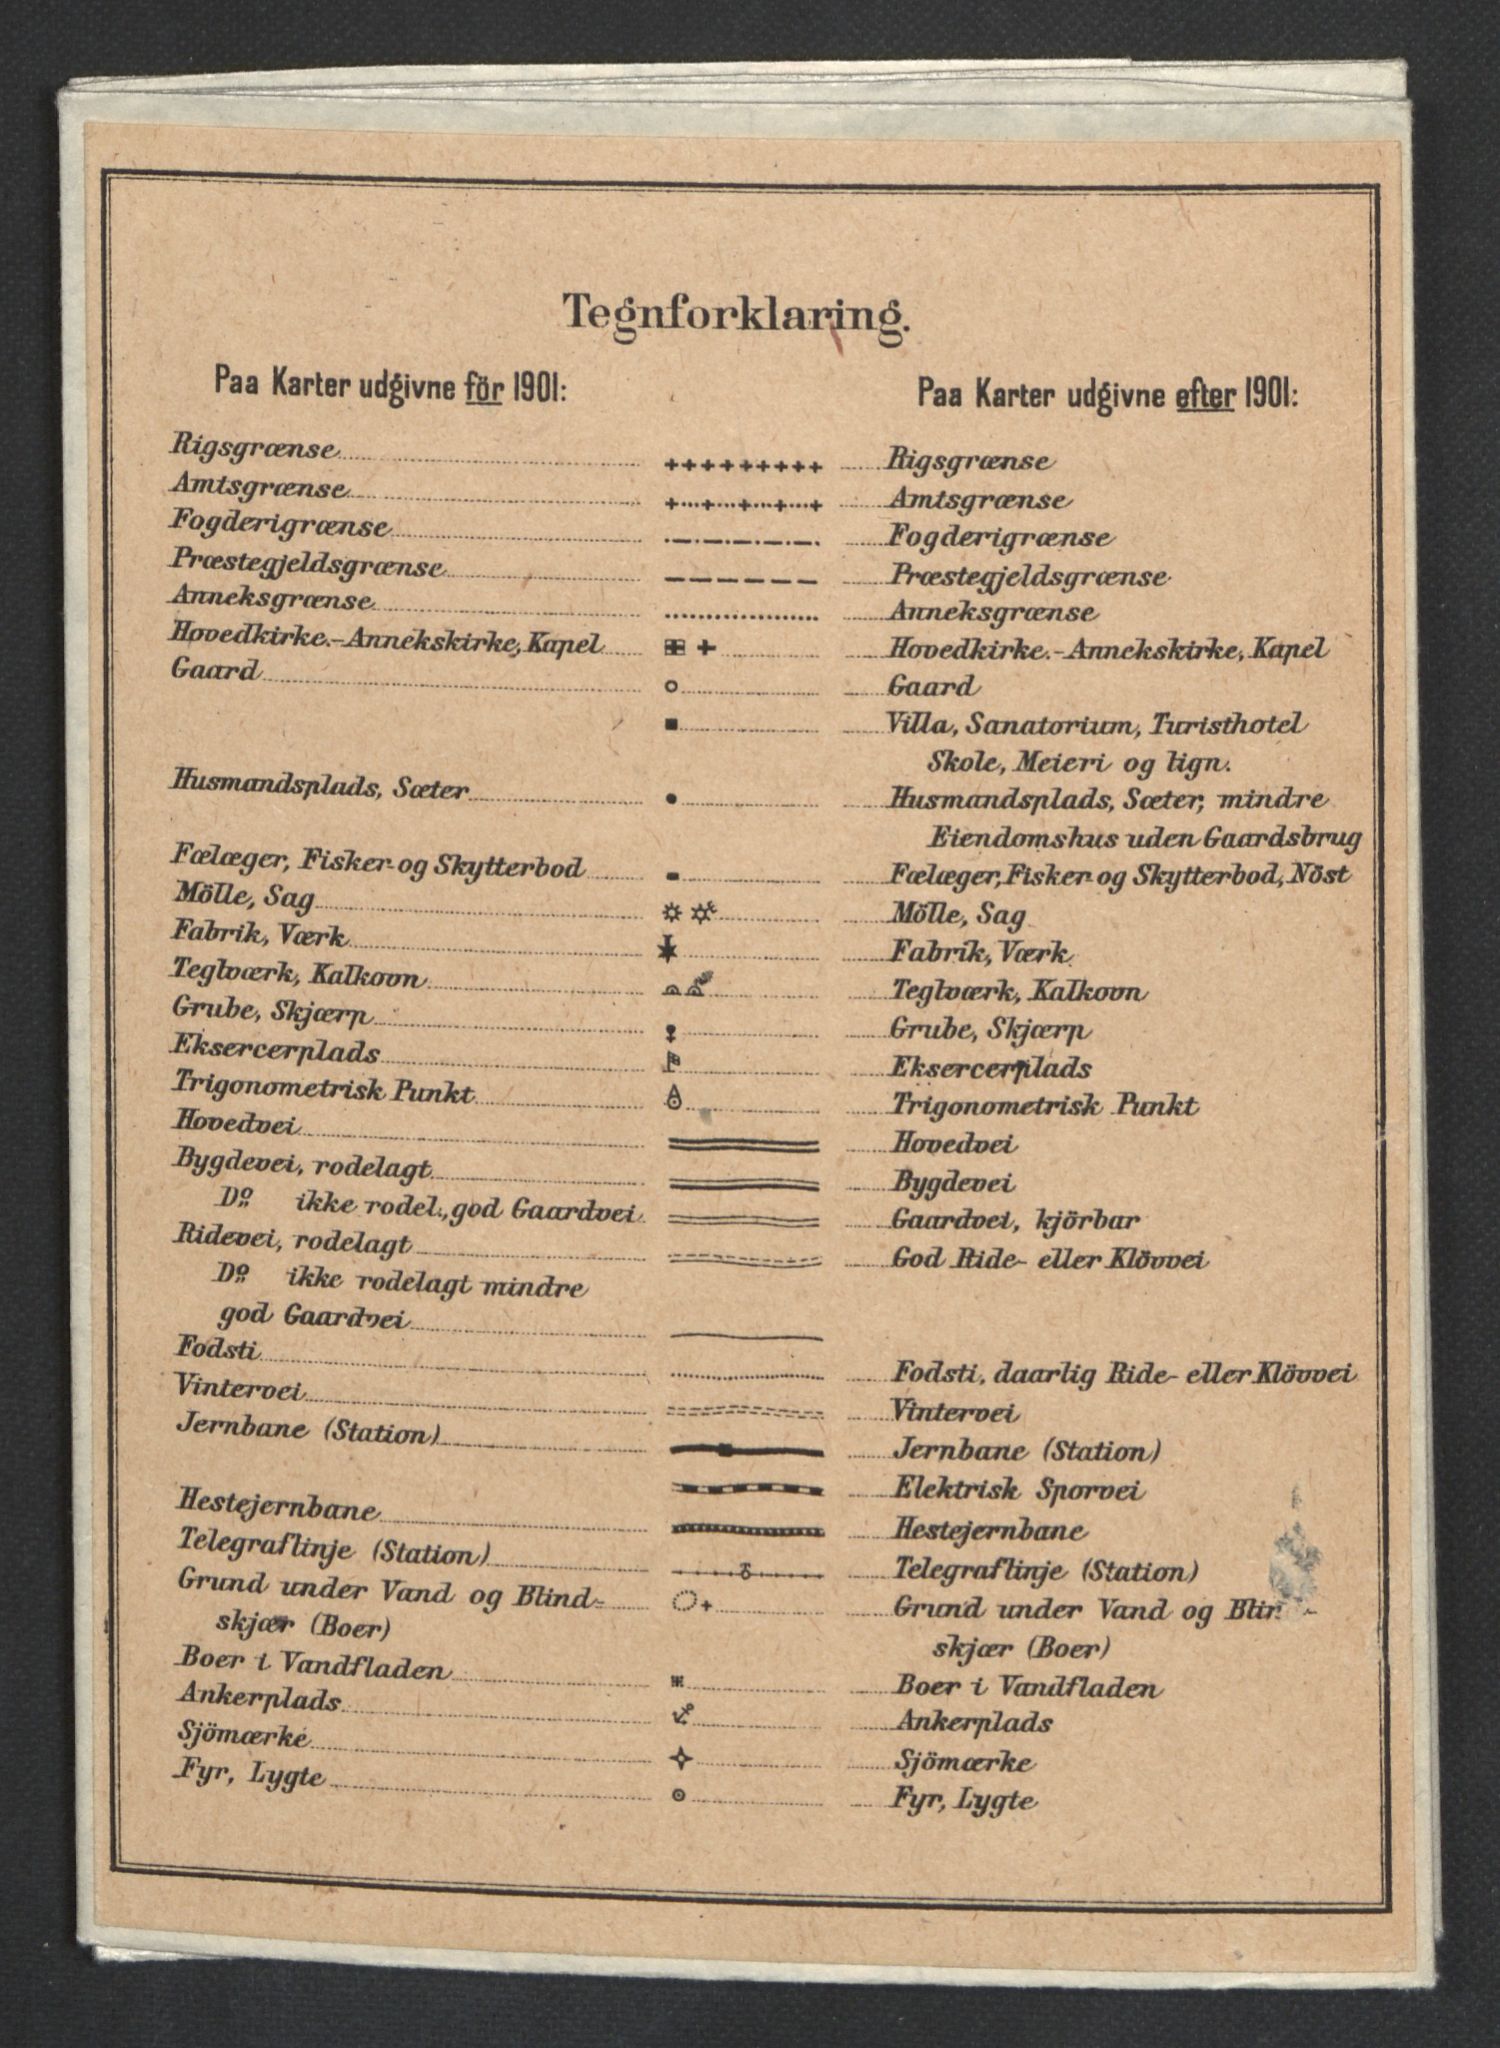 Tegnforklaring.
Paa Karter udgivne för 1901:
Rigsgrænse
Amtsgrænse
Fogderigrænse
Præstegjeldsgrænse
Anneksgrænse
Hovedkirke.-Annekskirke, Kapel
Gaard
Husmandsplads, Sæter
Fælæger, Fisker- og Skytterbod
Mölle, Sag
Fabrik, Værk
Teglværk, Kalkovn
Grube, Skjærp
Eksercerplads
Trigonometrisk Punkt
Hovedvei
Bygdevei, rodelagt
Do ikke rodel., god Gaardvei
Ridevei, rodelagt
Do ikke rodelagt mindre
god Gaardvei
Fodsti
Vintervei
Jernbane (Station)
Hestejernbane
Telegraflinje (Station)
Grund under Vand og Blind-
skjær (Boer)
Boer i Vandfladen
Ankerplads
Sjömærke
Fyr, Lygte
Paa Karter udgivne efter 1901:
Rigsgrænse
Amtsgrænse
Fogderigrænse
Præstegjeldsgrænse
Anneksgrænse
Hovedkirke.-Annekskirke, Kapel
Gaard
Villa, Sanatorium, Turisthotel
Skole, Meieri og lign.
Husmandsplads, Sæter, mindre
Eiendomshus uden Gaardsbrug
Fælæger, Fisker- og Skytterbod, Nöst
Mölle, Sag
Fabrik, Værk
Teglværk, Kalkovn
Grube, Skjærp
Eksercerplads
Trigonometrisk Punkt
Hovedvei
Bygdevei
Gaardvei, kjörbar
God Ride- eller Klövvei
Fodsti, daarlig Ride- eller Klövvei
Vintervei
Jernbane (Station)
Elektrisk Sporvei
Hestejernbane
Telegraflinje (Station)
Grund under Vand og
skjær (Boer)
Boer i Vandfladen
Ankerplads
Sjömærke
Fyr, Lygte